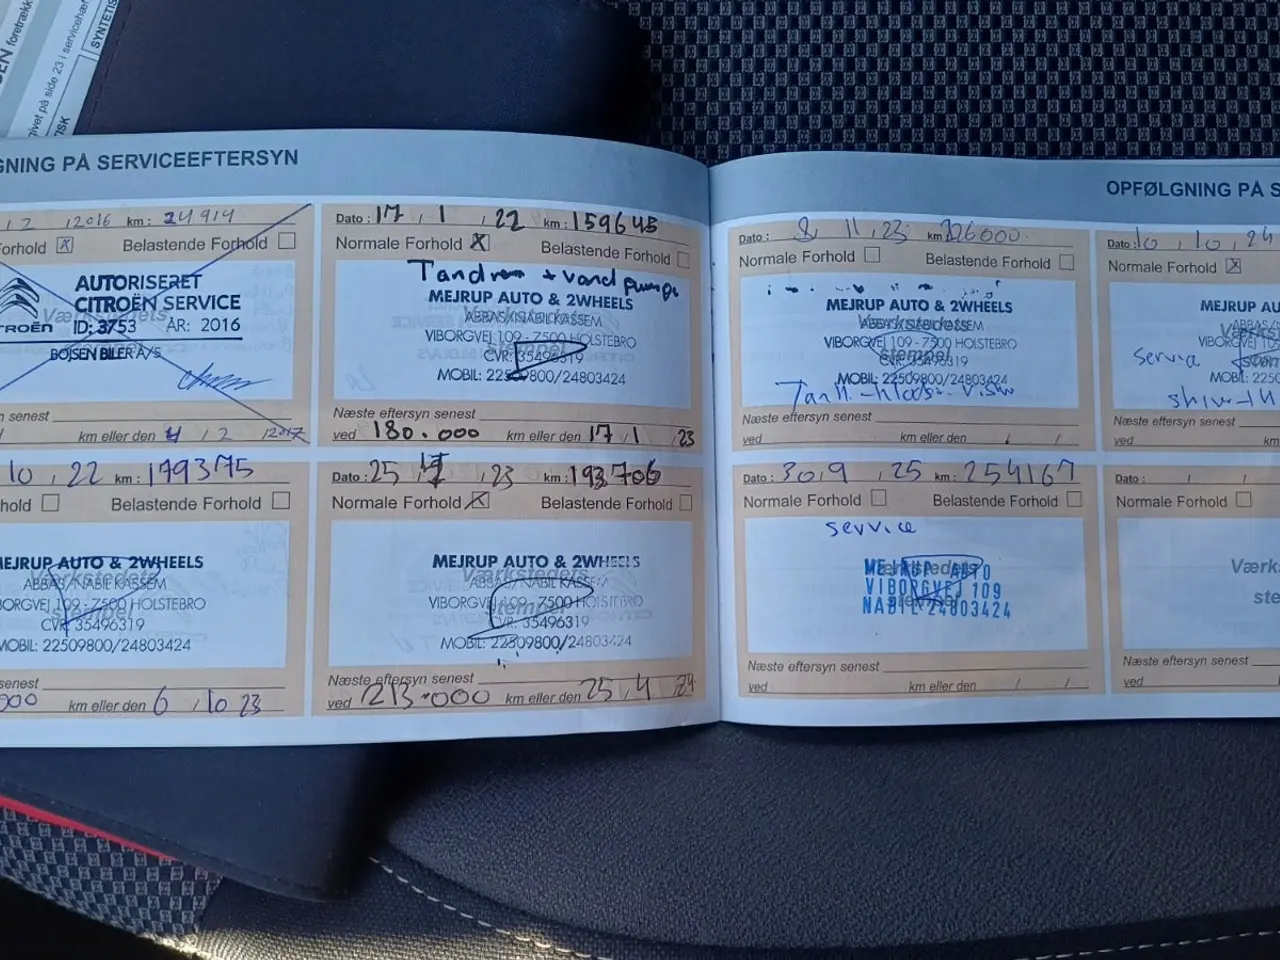 SEN foretrækk
givet på side 23 i servicehæ
SYNTETIS
GNING PÅ SERVICEEFTERSYN
2 2016 km: 24914
Forhold X Belastende Forhold
AUTORISERET
CITROËN SERVICE
TROËN ID: 3753 ÅR: 2016
Værkstedets
BOJSEN BILER A/S
n senest
km eller den 4 / 2 2017
Dato: 17 / 1 / 22 km: 159645
Normale Forhold X Belastende Forhold
Tandrem + vand pumpe
MEJRUP AUTO & 2WHEELS
ABBAS/NABIL KASSEM
VIBORGVEJ 109 - 7500 HOLSTEBRO
stempel
CVR: 35496319
MOBIL: 22509800/24803424
Næste eftersyn senest
ved 180.000 km eller den 17 / 1 / 23
10, 22 km: 179375
hold Belastende Forhold
MEJRUP AUTO & 2WHEELS
Værkstedets
ABBAS/NABIL KASSEM
BORGVEJ 109 - 7500 HOLSTEBRO
stempel
CVR: 35496319
MOBIL: 22509800/24803424
senest
000 km eller den 6 / 10 23
Dato: 25 / 23 km: 193706
Normale Forhold X Belastende Forhold
MEJRUP AUTO & 2WHEELS
Værkstedets
ABBAS/NABIL KASSEM
VIBORGVEJ 109 - 7500 HOLSTEBRO
stempel
CVR: 35496319
MOBIL: 22509800/24803424
Næste eftersyn senest
ved 213.000 km eller den 25 / 4 / 24
OPFØLGNING PÅ S
Dato: 8 / 11 / 23 km 226000
Normale Forhold Belastende Forhold
MEJRUP AUTO & 2WHEELS
Værkstedets
ABBAS/NABIL KASSEM
VIBORGVEJ 109 - 7500 HOLSTEBRO
stempel
CVR: 35496319
MOBIL: 22509800/24803424
Næste eftersyn senest
ved km eller den / /
Dato: 10 / 10 / 24
Normale Forhold X
MEJRUP AU
ABBAS/
VIBORGVEJ 109
Service
MOBIL: 22
Næste eftersyn senest
ved km
Dato: 30, 9 / 25 km: 254167
Normale Forhold Belastende Forhold
service
MEJRUP AUTO
Værkstedets
VIBORGVEJ 109
stempel
NABIL 24803424
Næste eftersyn senest
ved km eller den / /
Dato: / /
Normale Forhold
Værk
ste
Næste eftersyn senest
ved km